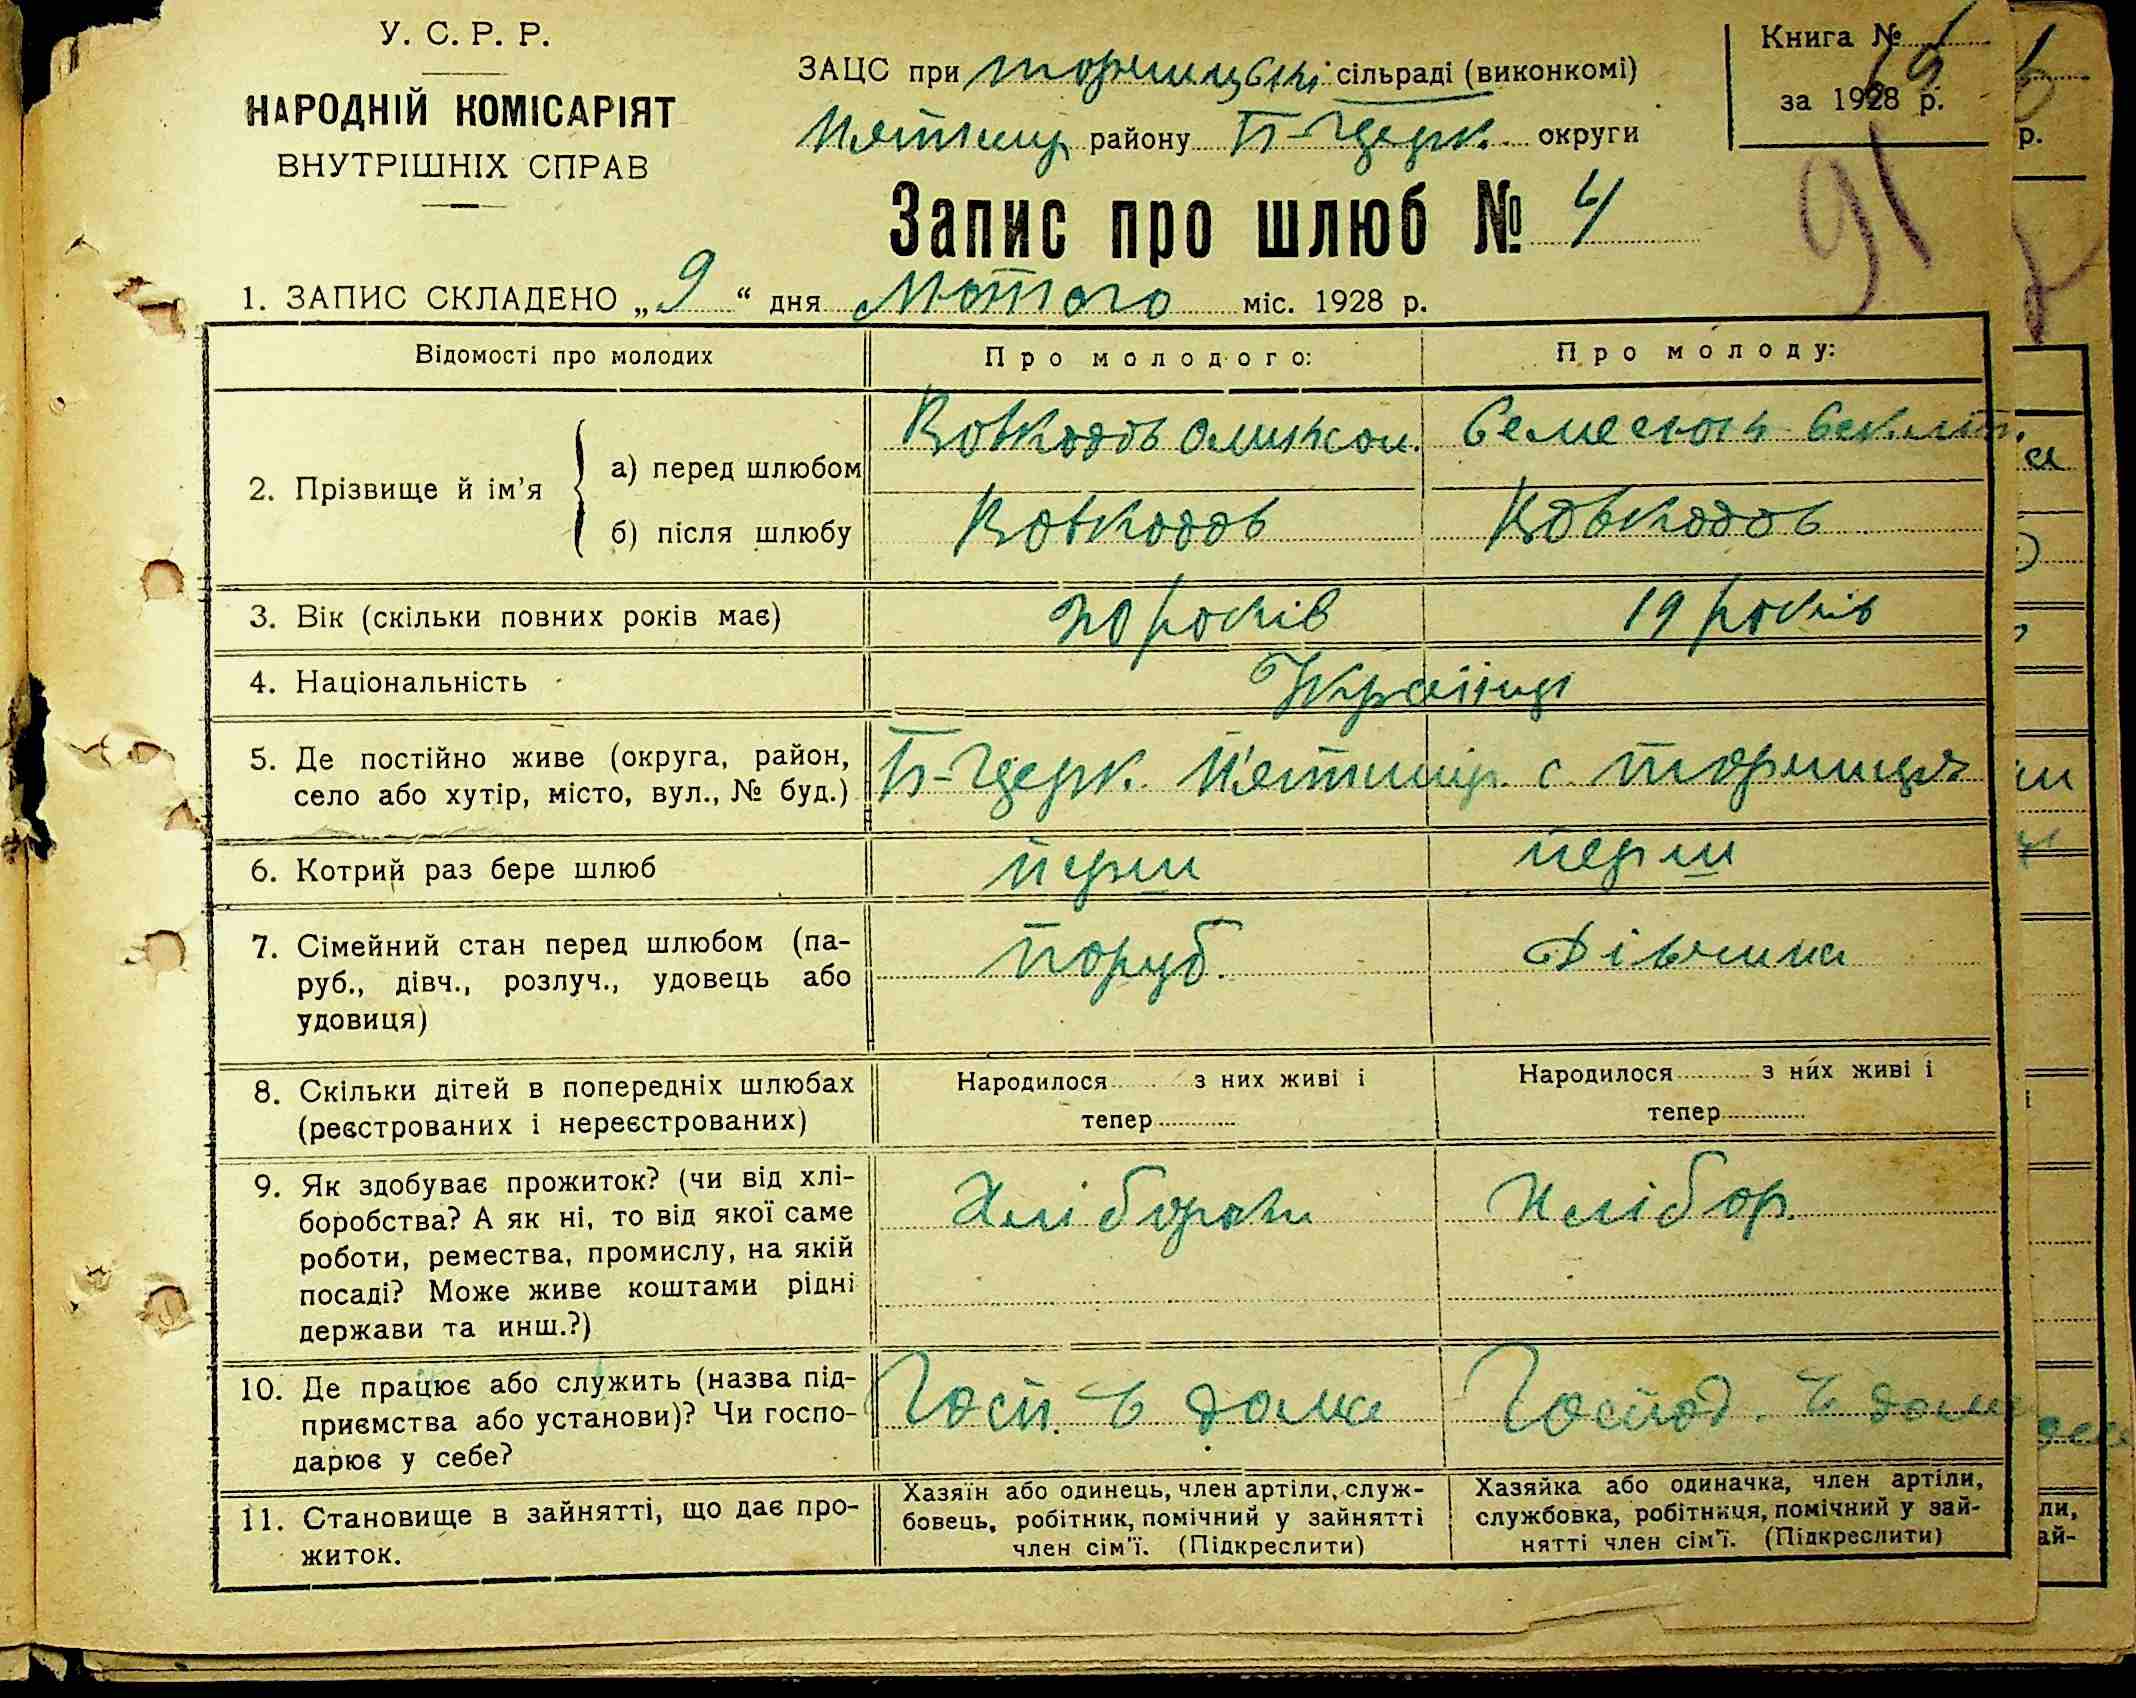 У. С. Р. Р.
НАРОДНІЙ КОМІСАРІЯТ
ВНУТРІШНІХ СПРАВ
ЗАЦС при торчицькі сільраді (виконкомі)
П'ятигір району Б-Церк. округи
Книга №
за 1928 р.
91
Запис про шлюб № 4
1. ЗАПИС СКЛАДЕНО „9“ дня Лютого міс. 1928 р.
Відомості про молодих
Про молодого:
Про молоду:
2. Прізвище й ім'я
а) перед шлюбом
Вовкодов
Семенюк
б) після шлюбу
Вовкодов
Вовкодов
3. Вік (скільки повних років має)
20 років
19 років
4. Національність
Українці
5. Де постійно живе (округа, район,
село або хутір, місто, вул., № буд.)
Б-Церк. П'ятигір. с.
6. Котрий раз бере шлюб
перш
перш
7. Сімейний стан перед шлюбом (па-
руб., дівч., розлуч., удовець або
удовиця)
Паруб.
Дівчина
8. Скільки дітей в попередніх шлюбах
(реєстрованих і нереєстрованих)
Народилося з них живі і
тепер
Народилося з них живі і
тепер
9. Як здобуває прожиток? (чи від хлі-
боробства? А як ні, то від якої саме
роботи, ремества, промислу, на якій
посаді? Може живе коштами рідні
держави та инш.?)
Хлібороби
Хлібор.
10. Де працює або служить (назва під-
приємства або установи)? Чи госпо-
дарює у себе?
Госп. в дома
Господ. в дома
11. Становище в зайнятті, що дає про-
житок.
Хазяїн або одинець, член артіли, служ-
бовець, робітник, помічний у зайнятті
член сім'ї. (Підкреслити)
Хазяйка або одиначка, член артіли,
службовка, робітниця, помічний у зай-
нятті член сім'ї. (Підкреслити)